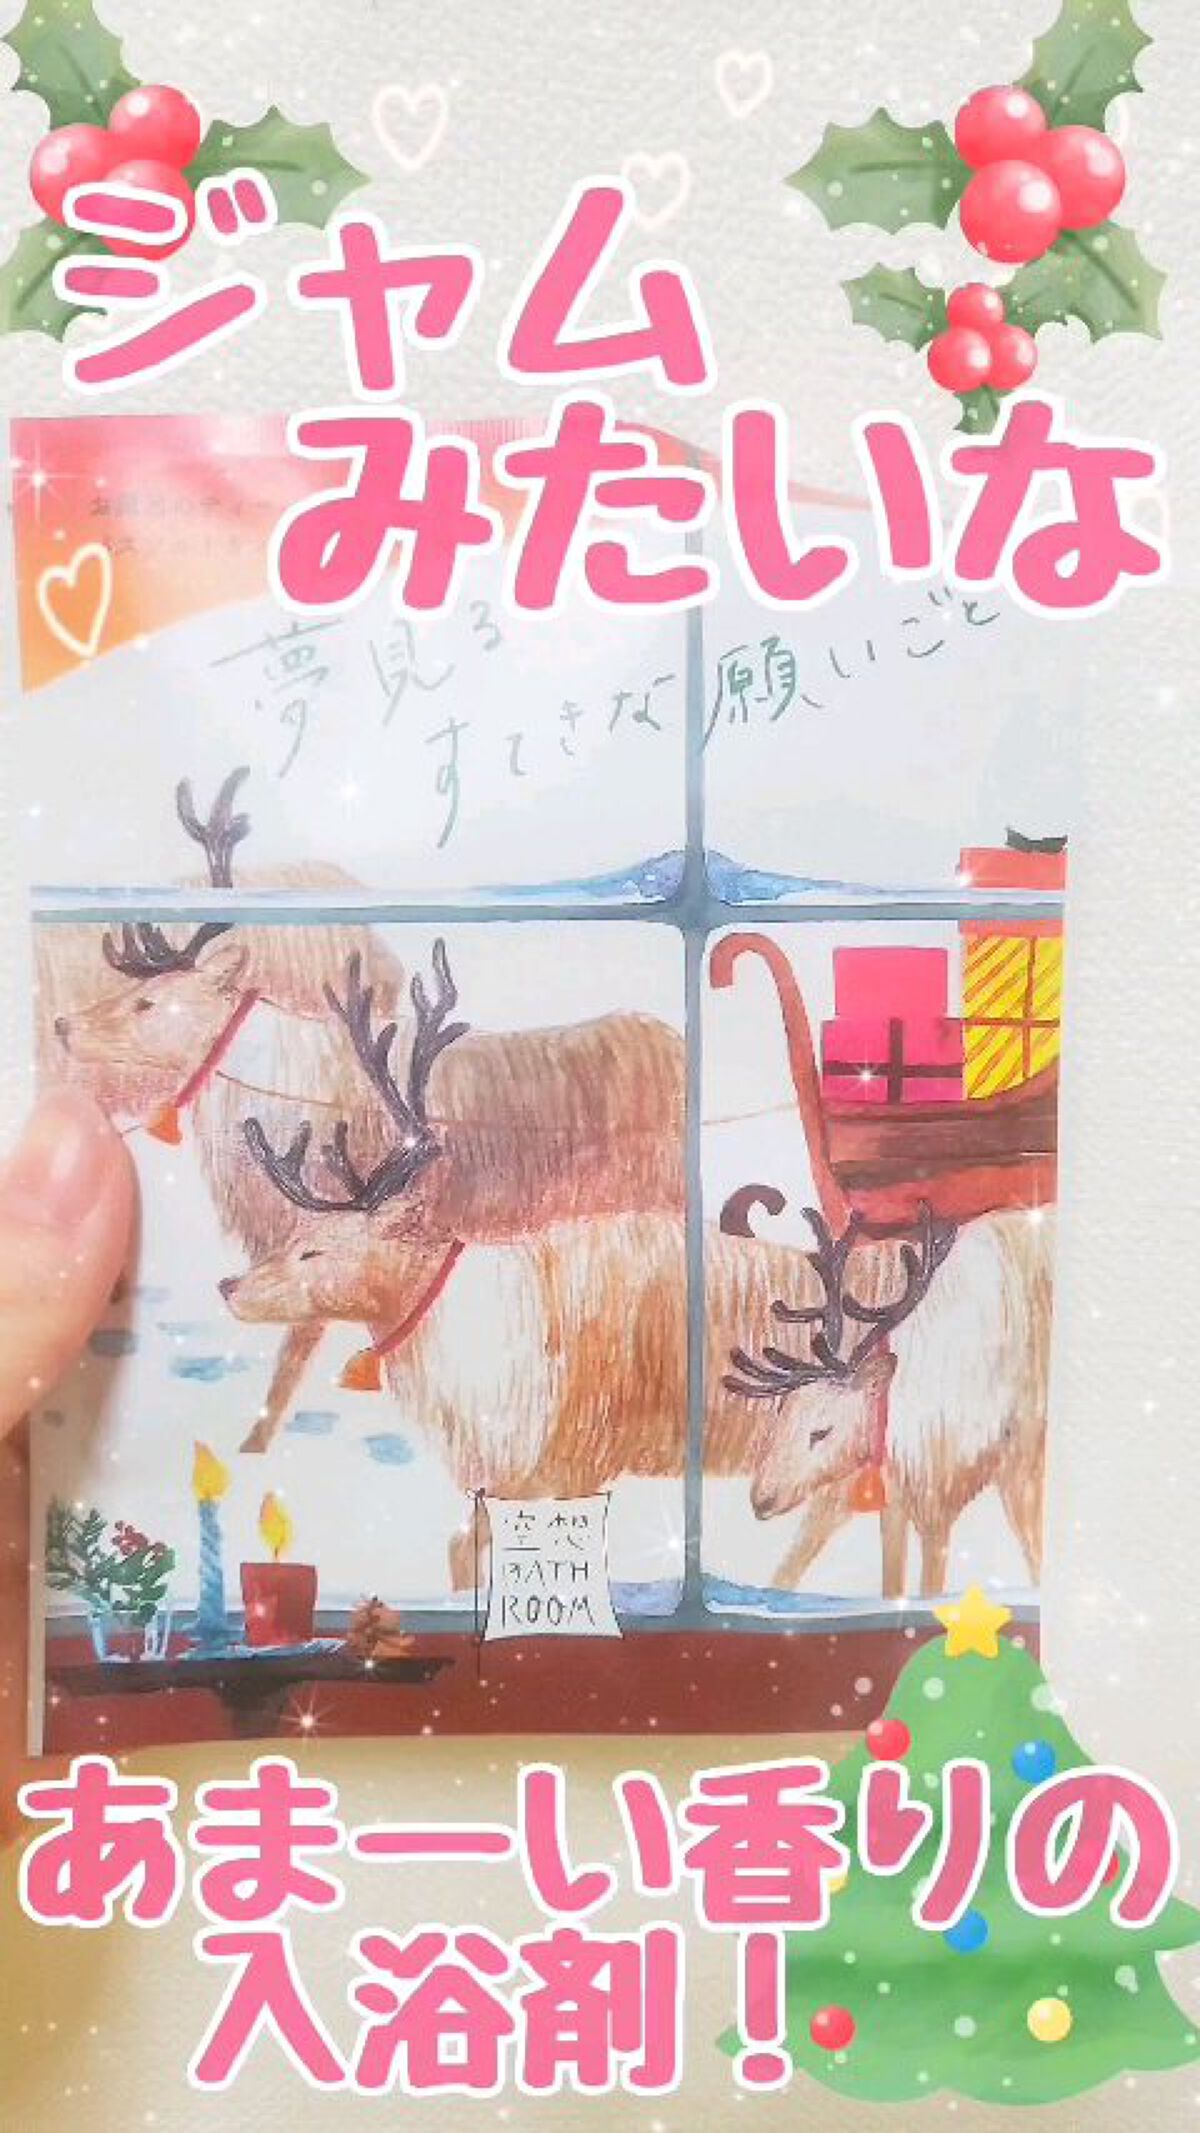 ジャム
みたいな
夢見る
すてきな願いごと
空想
BATH
ROOM
あまーい香りの
入浴剤！